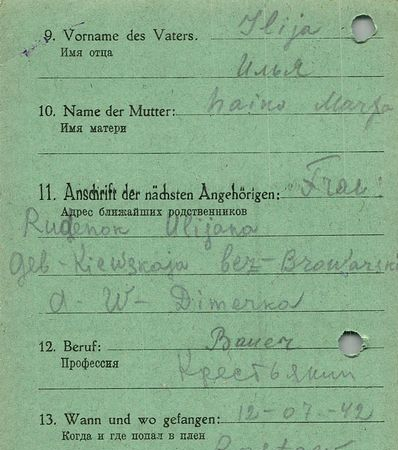 9. Vorname des Vaters. Ilija
Имя отца
Илья
10. Name der Mutter: haino Marfa
Имя матери
11. Anschrift der nächsten Angehörigen: Frau
Адрес ближайших родственников
Rudenok Ulijana
geb-Kiewskaja bez-Browarski
d-W-Dimerka
12. Beruf: Bauer
Профессия
Крестьянин
13. Wann und wo gefangen: 12-07-42
Когда и где попал в плен